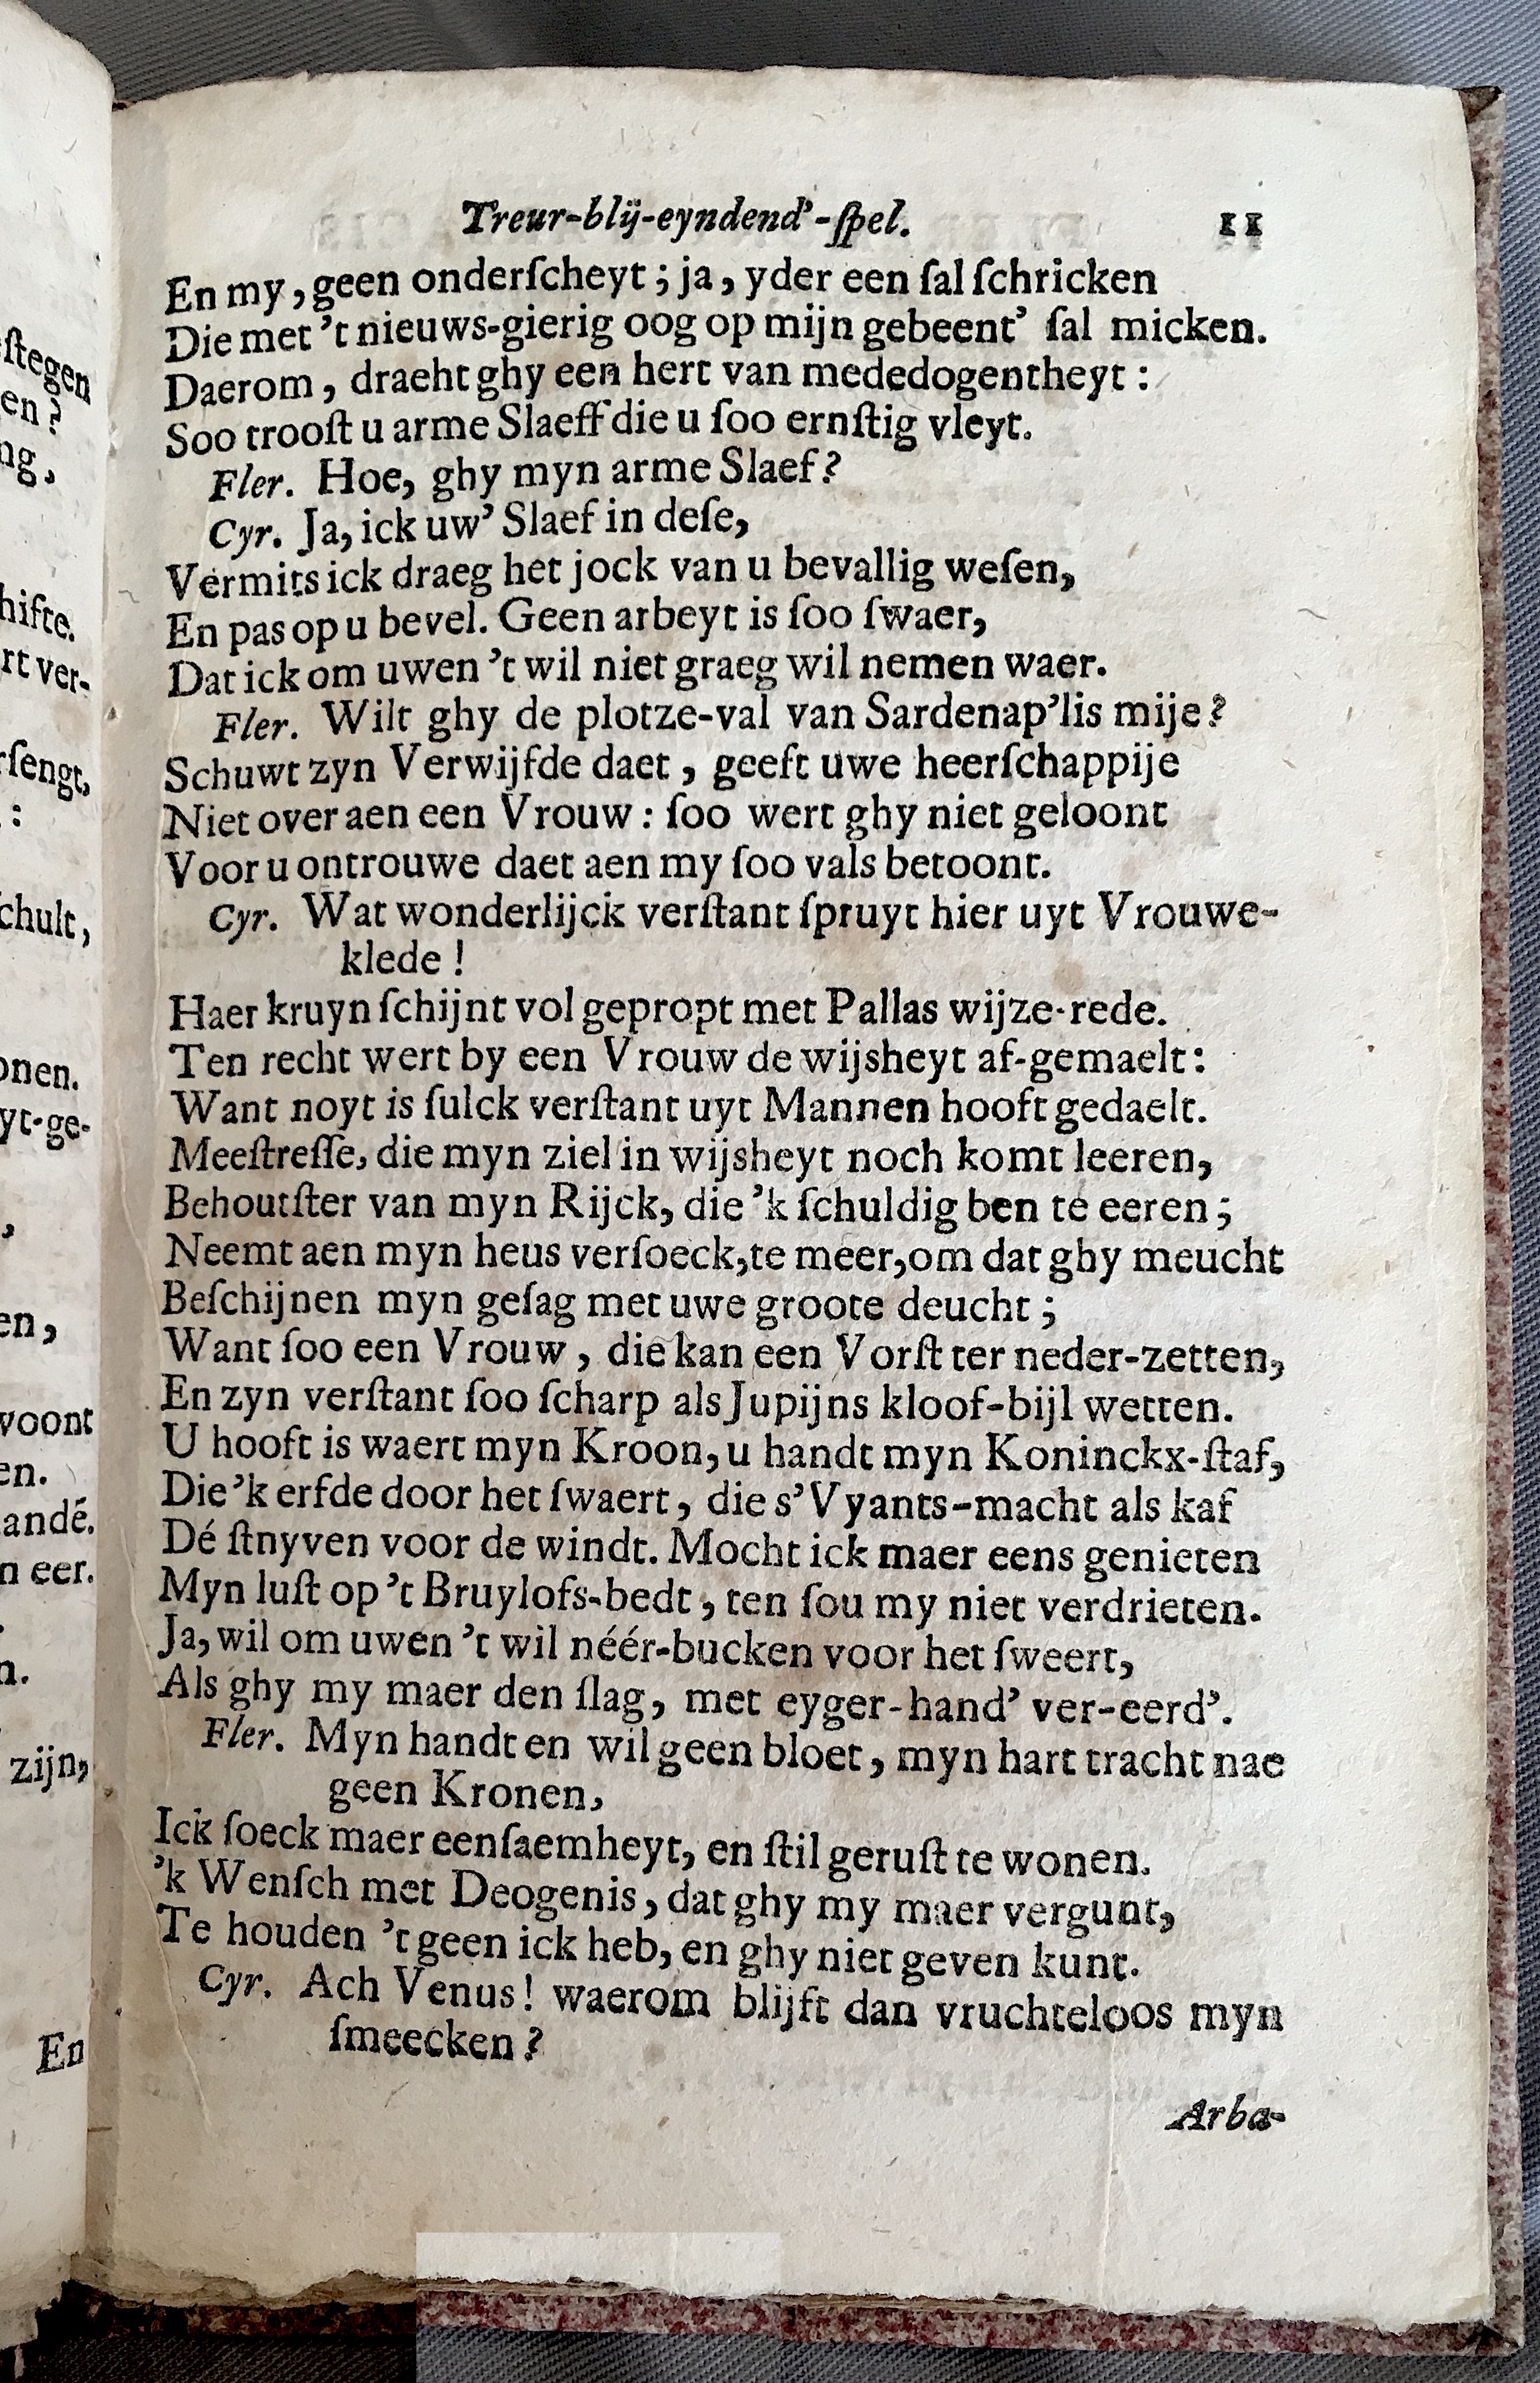 ſtegen
en?
ng,
hifte.
rt ver-
rſengt,
:
chult,
onen.
yt-ge-
,
en,
woont
en.
andé.
n eer.
n.
zijn,
En
Treur-blij-eyndend'-ſpel. 11
En my, geen onderſcheyt; ja, yder een ſal ſchricken
Die met 't nieuws-gierig oog op mijn gebeent' ſal micken.
Daerom, draeht ghy een hert van mededogentheyt:
Soo trooſt u arme Slaeff die u ſoo ernſtig vleyt.
Fler. Hoe, ghy myn arme Slaef?
Cyr. Ja, ick uw' Slaef in deſe,
Vermits ick draeg het jock van u bevallig weſen,
En pas op u bevel. Geen arbeyt is ſoo ſwaer,
Dat ick om uwen 't wil niet graeg wil nemen waer.
Fler. Wilt ghy de plotze-val van Sardenap'lis mije?
Schuwt zyn Verwijfde daet, geeft uwe heerſchappije
Niet over aen een Vrouw: ſoo wert ghy niet geloont
Voor u ontrouwe daet aen my ſoo vals betoont.
Cyr. Wat wonderlijck verſtant ſpruyt hier uyt Vrouwe-
klede!
Haer kruyn ſchijnt vol gepropt met Pallas wijze-rede.
Ten recht wert by een Vrouw de wijsheyt af-gemaelt:
Want noyt is ſulck verſtant uyt Mannen hooft gedaelt.
Meeſtreſſe, die myn ziel in wijsheyt noch komt leeren,
Behoutſter van myn Rijck, die 'k ſchuldig ben te eeren;
Neemt aen myn heus verſoeck, te meer, om dat ghy meucht
Beſchijnen myn geſag met uwe groote deucht;
Want ſoo een Vrouw, die kan een Vorſt ter neder-zetten,
En zyn verſtant ſoo ſcharp als Jupijns kloof-bijl wetten.
U hooft is waert myn Kroon, u handt myn Koninckx-ſtaf,
Die 'k erfde door het ſwaert, die s'Vyants-macht als kaf
Dé ſtnyven voor de windt. Mocht ick maer eens genieten
Myn luſt op 't Bruylofs-bedt, ten ſou my niet verdrieten.
Ja, wil om uwen 't wil néér-bucken voor het ſweert,
Als ghy my maer den ſlag, met eyger-hand' ver-eerd'.
Fler. Myn handt en wil geen bloet, myn hart tracht nae
geen Kronen,
Ick ſoeck maer eenſaemheyt, en ſtil geruſt te wonen.
'k Wenſch met Deogenis, dat ghy my maer vergunt,
Te houden 't geen ick heb, en ghy niet geven kunt.
Cyr. Ach Venus! waerom blijft dan vruchteloos myn
ſmeecken?
Arba-